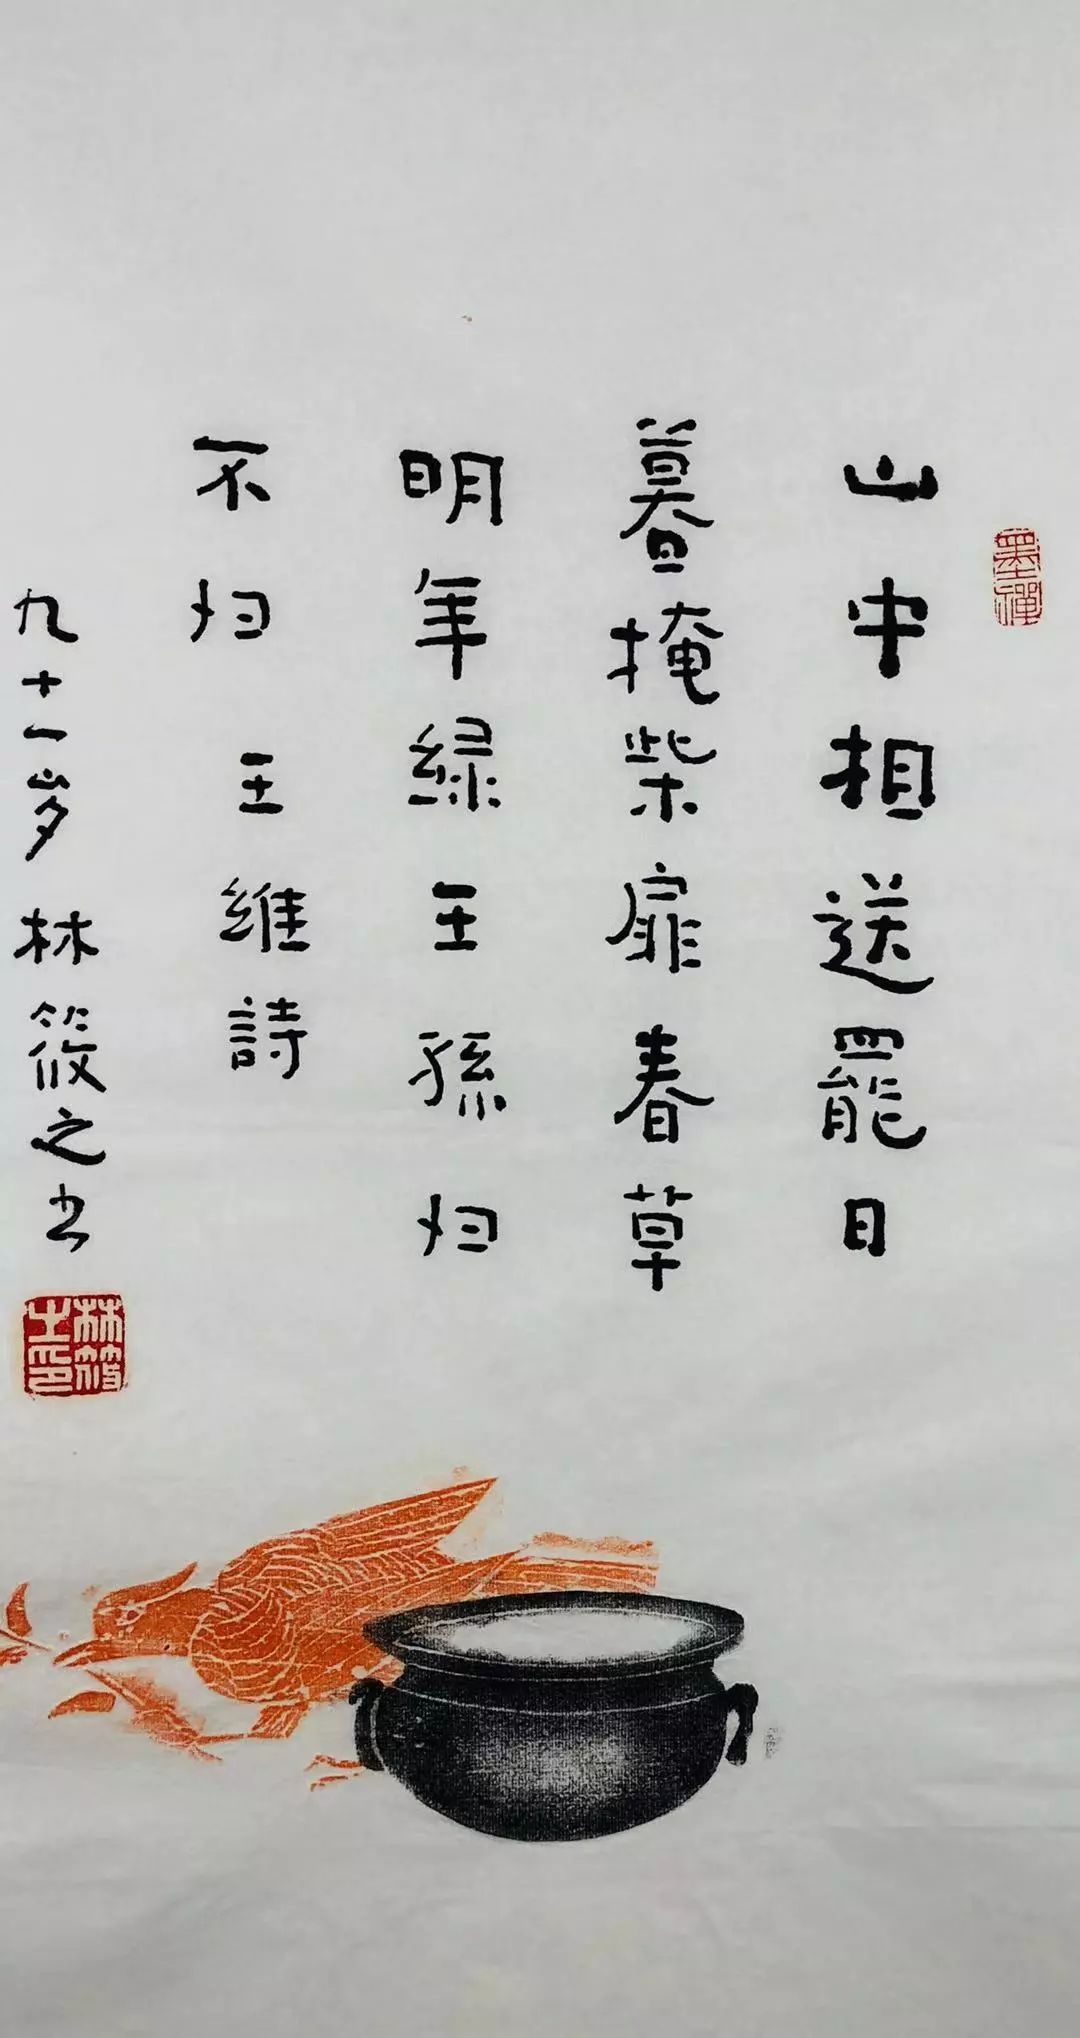 墨禪
山中相送罷日
暮掩柴扉春草
明年绿王孫归
不归 王維詩
九十一岁林筱之书
林筱之印